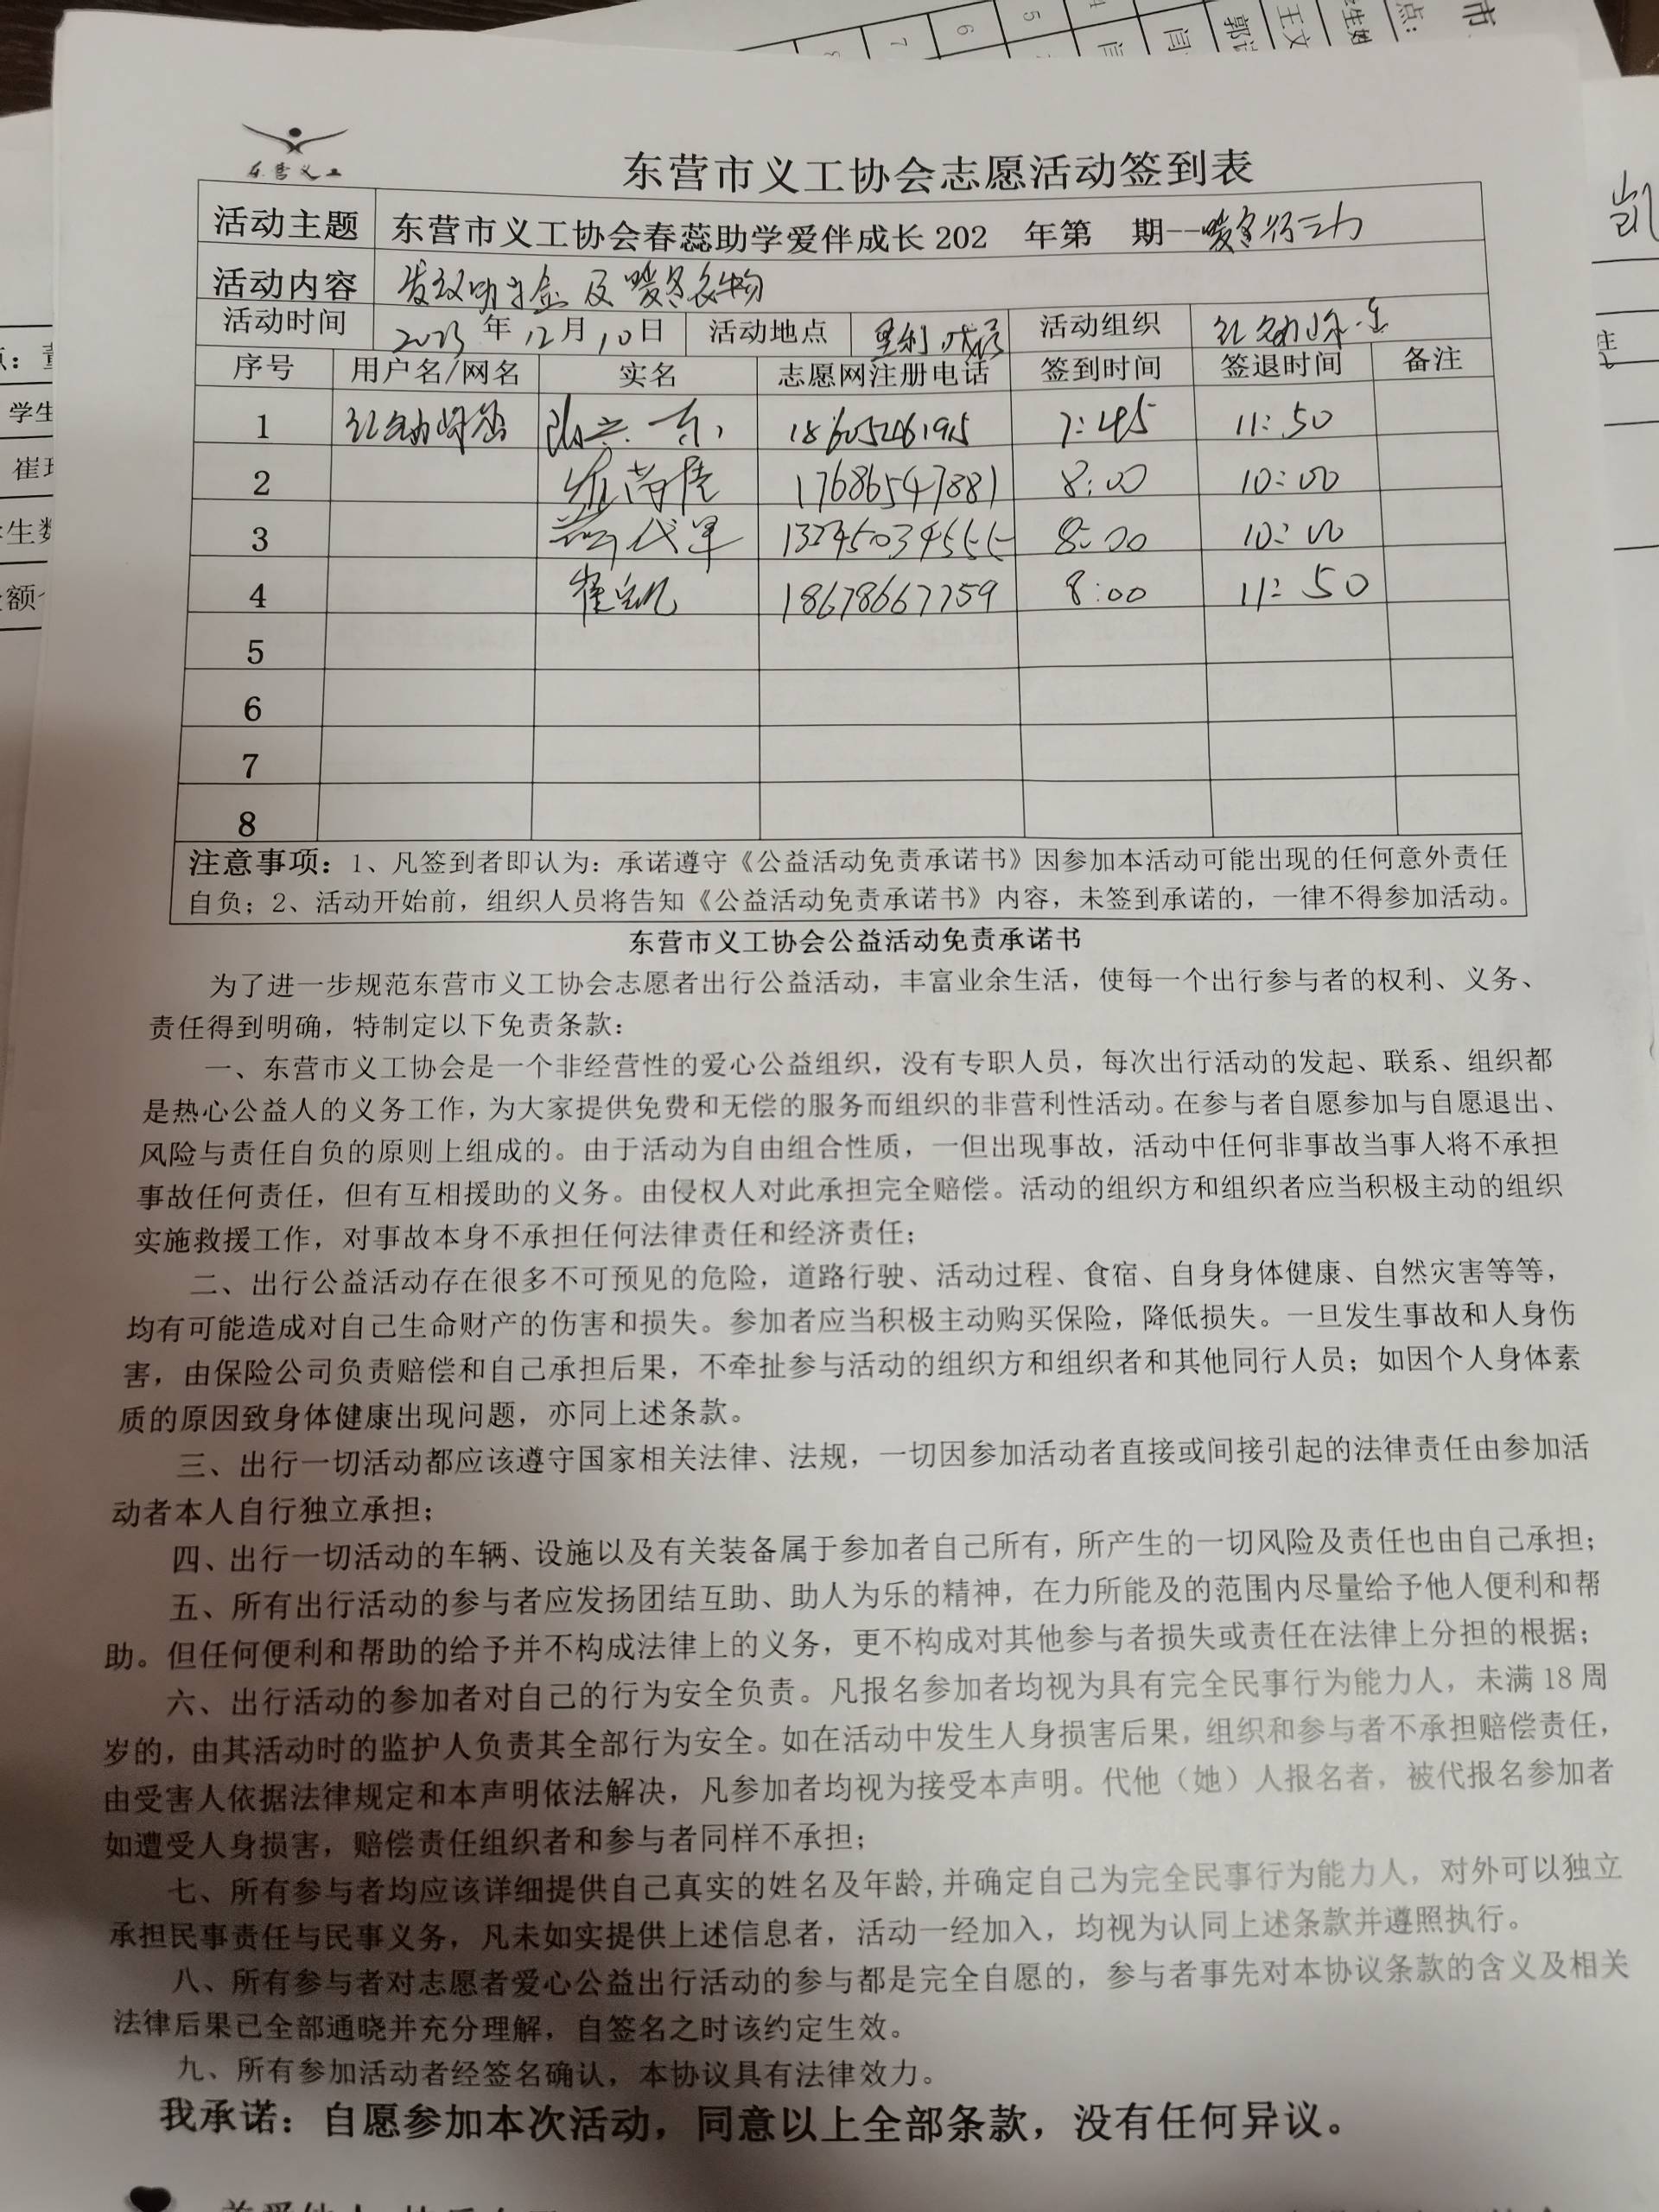 东营义工
东营市义工协会志愿活动签到表
活动主题 东营市义工协会春蕊助学爱伴成长 202 年第 期--暖冬行动
活动内容 发放助学金及暖冬衣物
活动时间 2023 年 12 月 10 日 活动地点 垦利 活动组织
序号 用户名/网名 实名 志愿网注册电话 签到时间 签退时间 备注
1 18605461915 7:45 11:50
2 17686547881 8:00 10:00
3 8:00 10:00
4 崔凯 18678667759 8:00 11:50
5
6
7
8
注意事项：1、凡签到者即认为：承诺遵守《公益活动免责承诺书》因参加本活动可能出现的任何意外责任
自负；2、活动开始前，组织人员将告知《公益活动免责承诺书》内容，未签到承诺的，一律不得参加活动。
东营市义工协会公益活动免责承诺书
为了进一步规范东营市义工协会志愿者出行公益活动，丰富业余生活，使每一个出行参与者的权利、义务、
责任得到明确，特制定以下免责条款：
一、东营市义工协会是一个非经营性的爱心公益组织，没有专职人员，每次出行活动的发起、联系、组织都
是热心公益人的义务工作，为大家提供免费和无偿的服务而组织的非营利性活动。在参与者自愿参加与自愿退出、
风险与责任自负的原则上组成的。由于活动为自由组合性质，一但出现事故，活动中任何非事故当事人将不承担
事故任何责任，但有互相援助的义务。由侵权人对此承担完全赔偿。活动的组织方和组织者应当积极主动的组织
实施救援工作，对事故本身不承担任何法律责任和经济责任；
二、出行公益活动存在很多不可预见的危险，道路行驶、活动过程、食宿、自身身体健康、自然灾害等等，
均有可能造成对自己生命财产的伤害和损失。参加者应当积极主动购买保险，降低损失。一旦发生事故和人身伤
害，由保险公司负责赔偿和自己承担后果，不牵扯参与活动的组织方和组织者和其他同行人员；如因个人身体素
质的原因致身体健康出现问题，亦同上述条款。
三、出行一切活动都应该遵守国家相关法律、法规，一切因参加活动者直接或间接引起的法律责任由参加活
动者本人自行独立承担；
四、出行一切活动的车辆、设施以及有关装备属于参加者自己所有，所产生的一切风险及责任也由自己承担；
五、所有出行活动的参与者应发扬团结互助、助人为乐的精神，在力所能及的范围内尽量给予他人便利和帮
助。但任何便利和帮助的给予并不构成法律上的义务，更不构成对其他参与者损失或责任在法律上分担的根据；
六、出行活动的参加者对自己的行为安全负责。凡报名参加者均视为具有完全民事行为能力人，未满 18 周
岁的，由其活动时的监护人负责其全部行为安全。如在活动中发生人身损害后果，组织和参与者不承担赔偿责任，
由受害人依据法律规定和本声明依法解决，凡参加者均视为接受本声明。代他（她）人报名者，被代报名参加者
如遭受人身损害，赔偿责任组织者和参与者同样不承担；
七、所有参与者均应该详细提供自己真实的姓名及年龄,并确定自己为完全民事行为能力人，对外可以独立
承担民事责任与民事义务，凡未如实提供上述信息者，活动一经加入，均视为认同上述条款并遵照执行。
八、所有参与者对志愿者爱心公益出行活动的参与都是完全自愿的，参与者事先对本协议条款的含义及相关
法律后果已全部通晓并充分理解，自签名之时该约定生效。
九、所有参加活动者经签名确认，本协议具有法律效力。
我承诺：自愿参加本次活动，同意以上全部条款，没有任何异议。